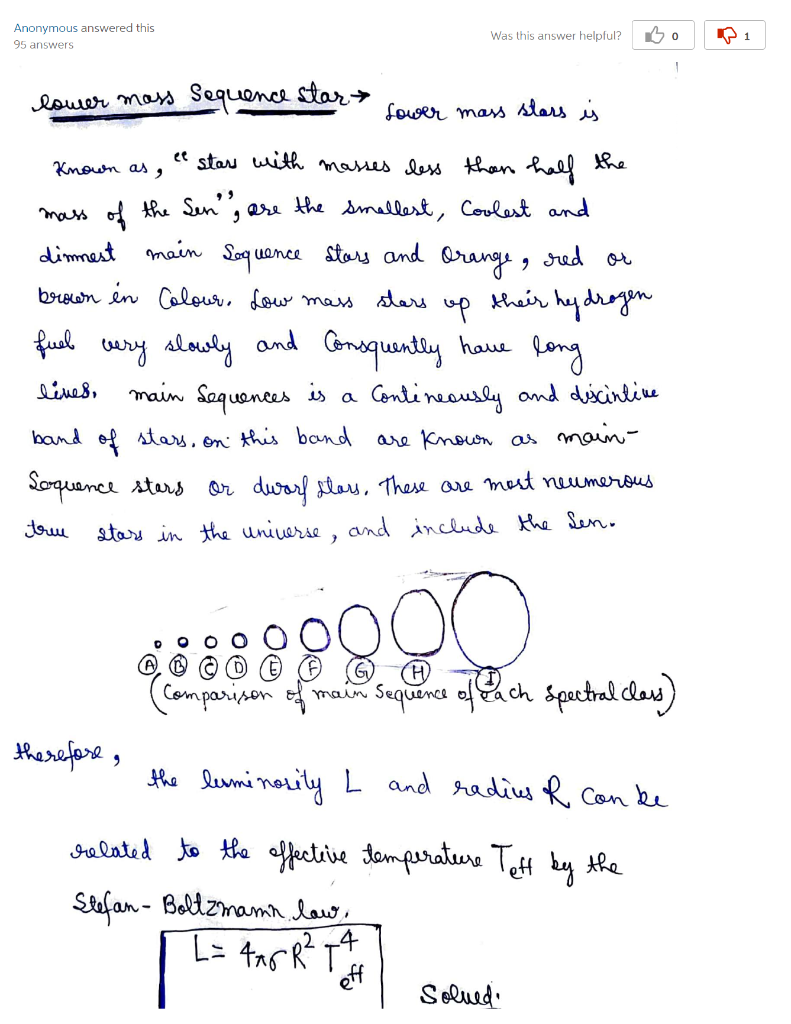 Anonymous answered this
95 answers
Was this answer helpful?
0
1
lower mass Sequence star→
Lower mass stars is
Known as, "stars with masses less than half the
mass of the Sen", are the smallest, Coolest and
dimmest main Sequence stars and Orange, red or
brown in Colour. Low mass stars up their hydrogen
fuel very slowly and Consquently have long
lives. main Sequences is a Contineously and discintive
band of stars. on this band are Known as main-
Sequence stars or dwarf stars. These are most neumerous
true stars in the universe, and include the Sen.
A B C D E F G H I
(Comparison of main Sequence of each spectral class)
therefore,
the luminosity L and radius R Can be
related to the effective temperature Teff by the
Stefan-Boltzmann law.
L= 4πσR² T⁴eff
Solued.